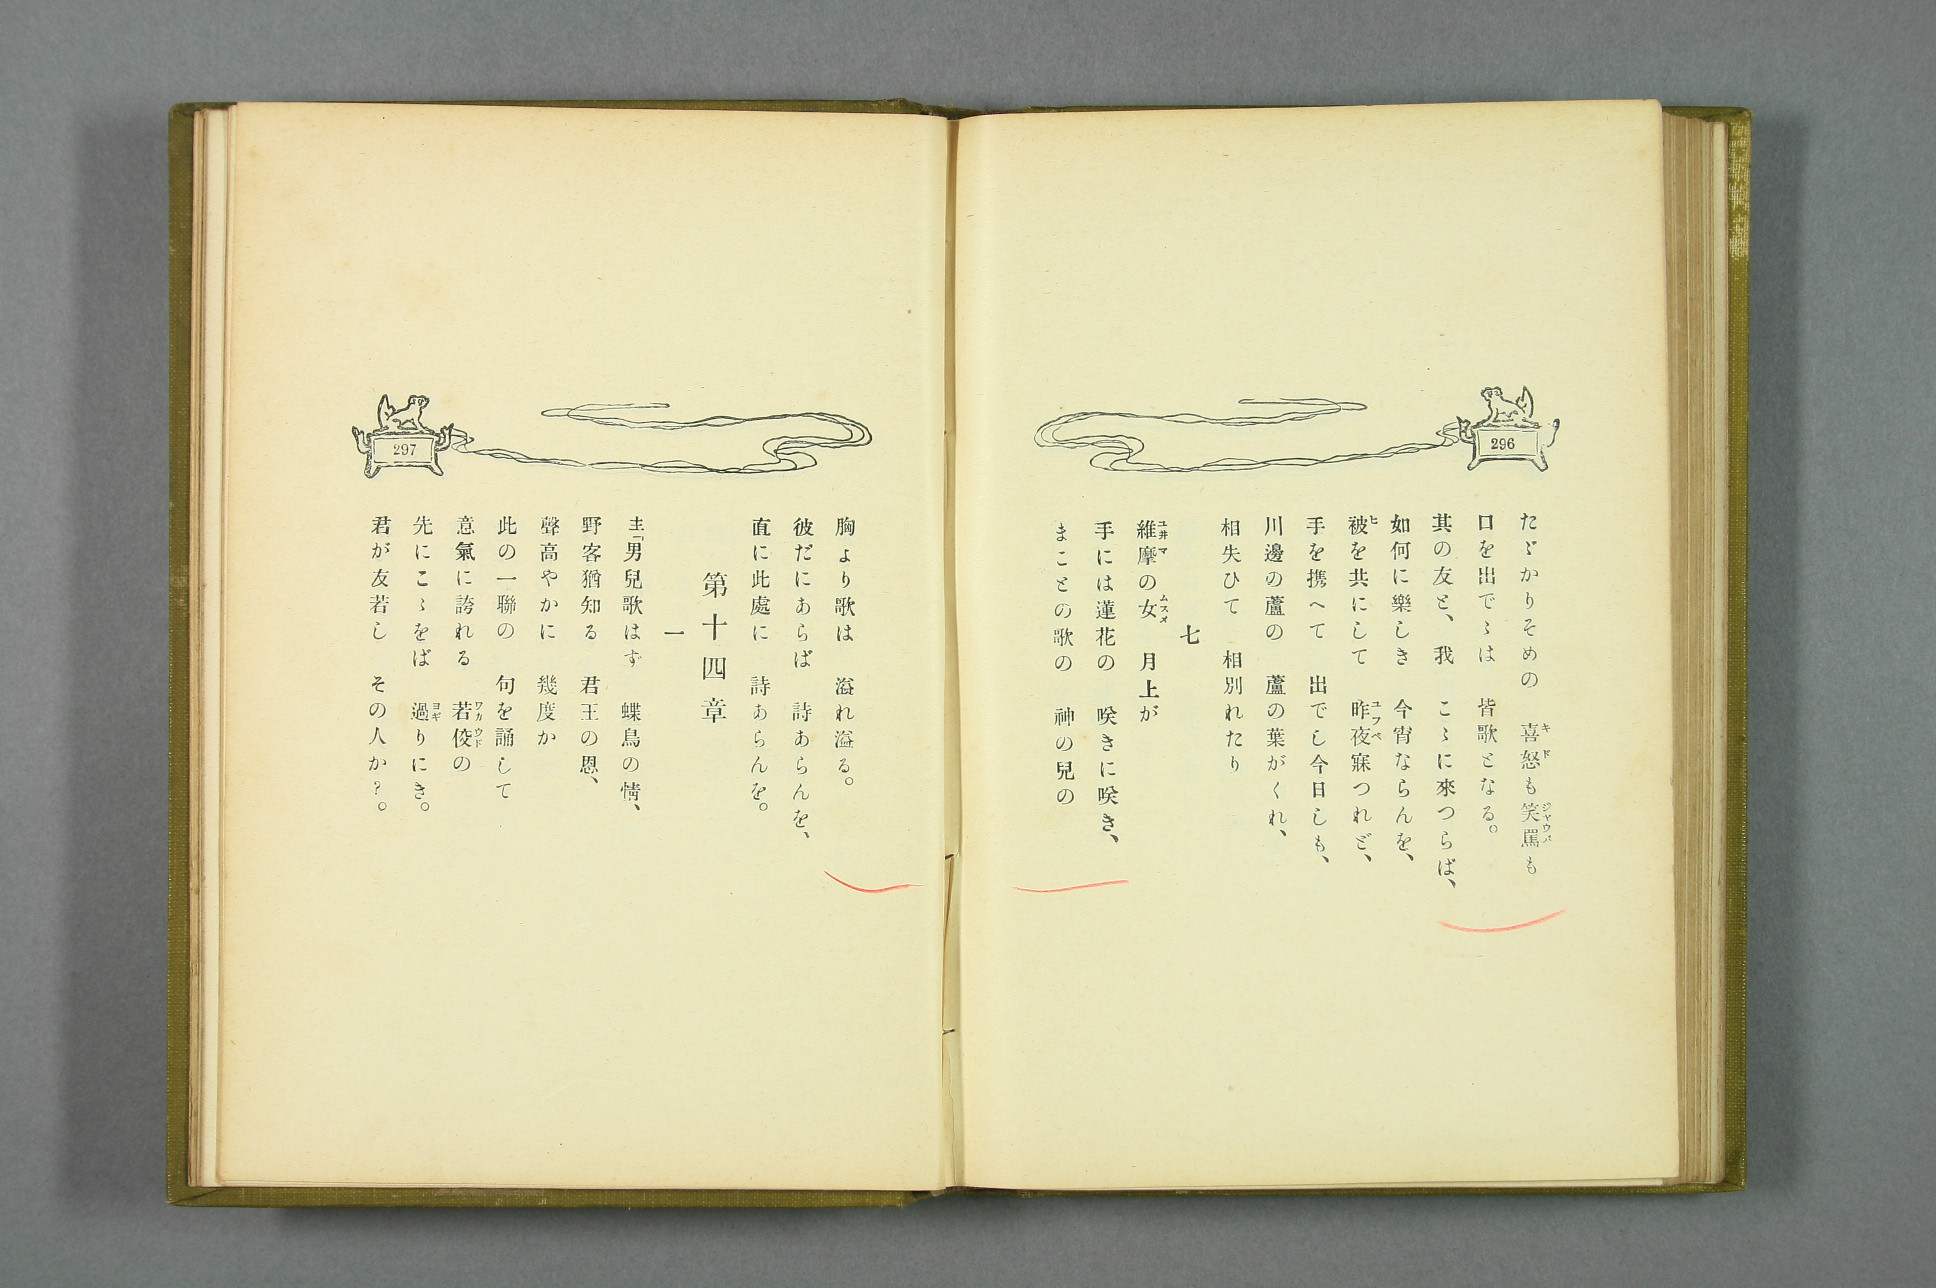 296
たゞかりそめの　喜怒も笑罵も
口を出でゝは　皆歌となる。
其の友と、我　こゝに來つらば、
如何に樂しき　今宵ならんを、
被を共にして　昨夜寐つれど、
手を携へて　出でし今日しも、
川邊の蘆の　蘆の葉がくれ、
相失ひて　相別れたり
七
維摩の女　月上が
手には蓮花の　咲きに咲き、
まことの歌の　神の兒の
297
胸より歌は　溢れ溢る。
彼だにあらば　詩あらんを、
直に此處に　詩あらんを。
第十四章
一
圭「男兒歌はず　蝶鳥の情、
野客猶知る　君王の恩、
聲高やかに　幾度か
此の一聯の　句を誦して
意氣に誇れる　若俊の
先にこゝをば　過りにき。
君が友若し　その人か？。